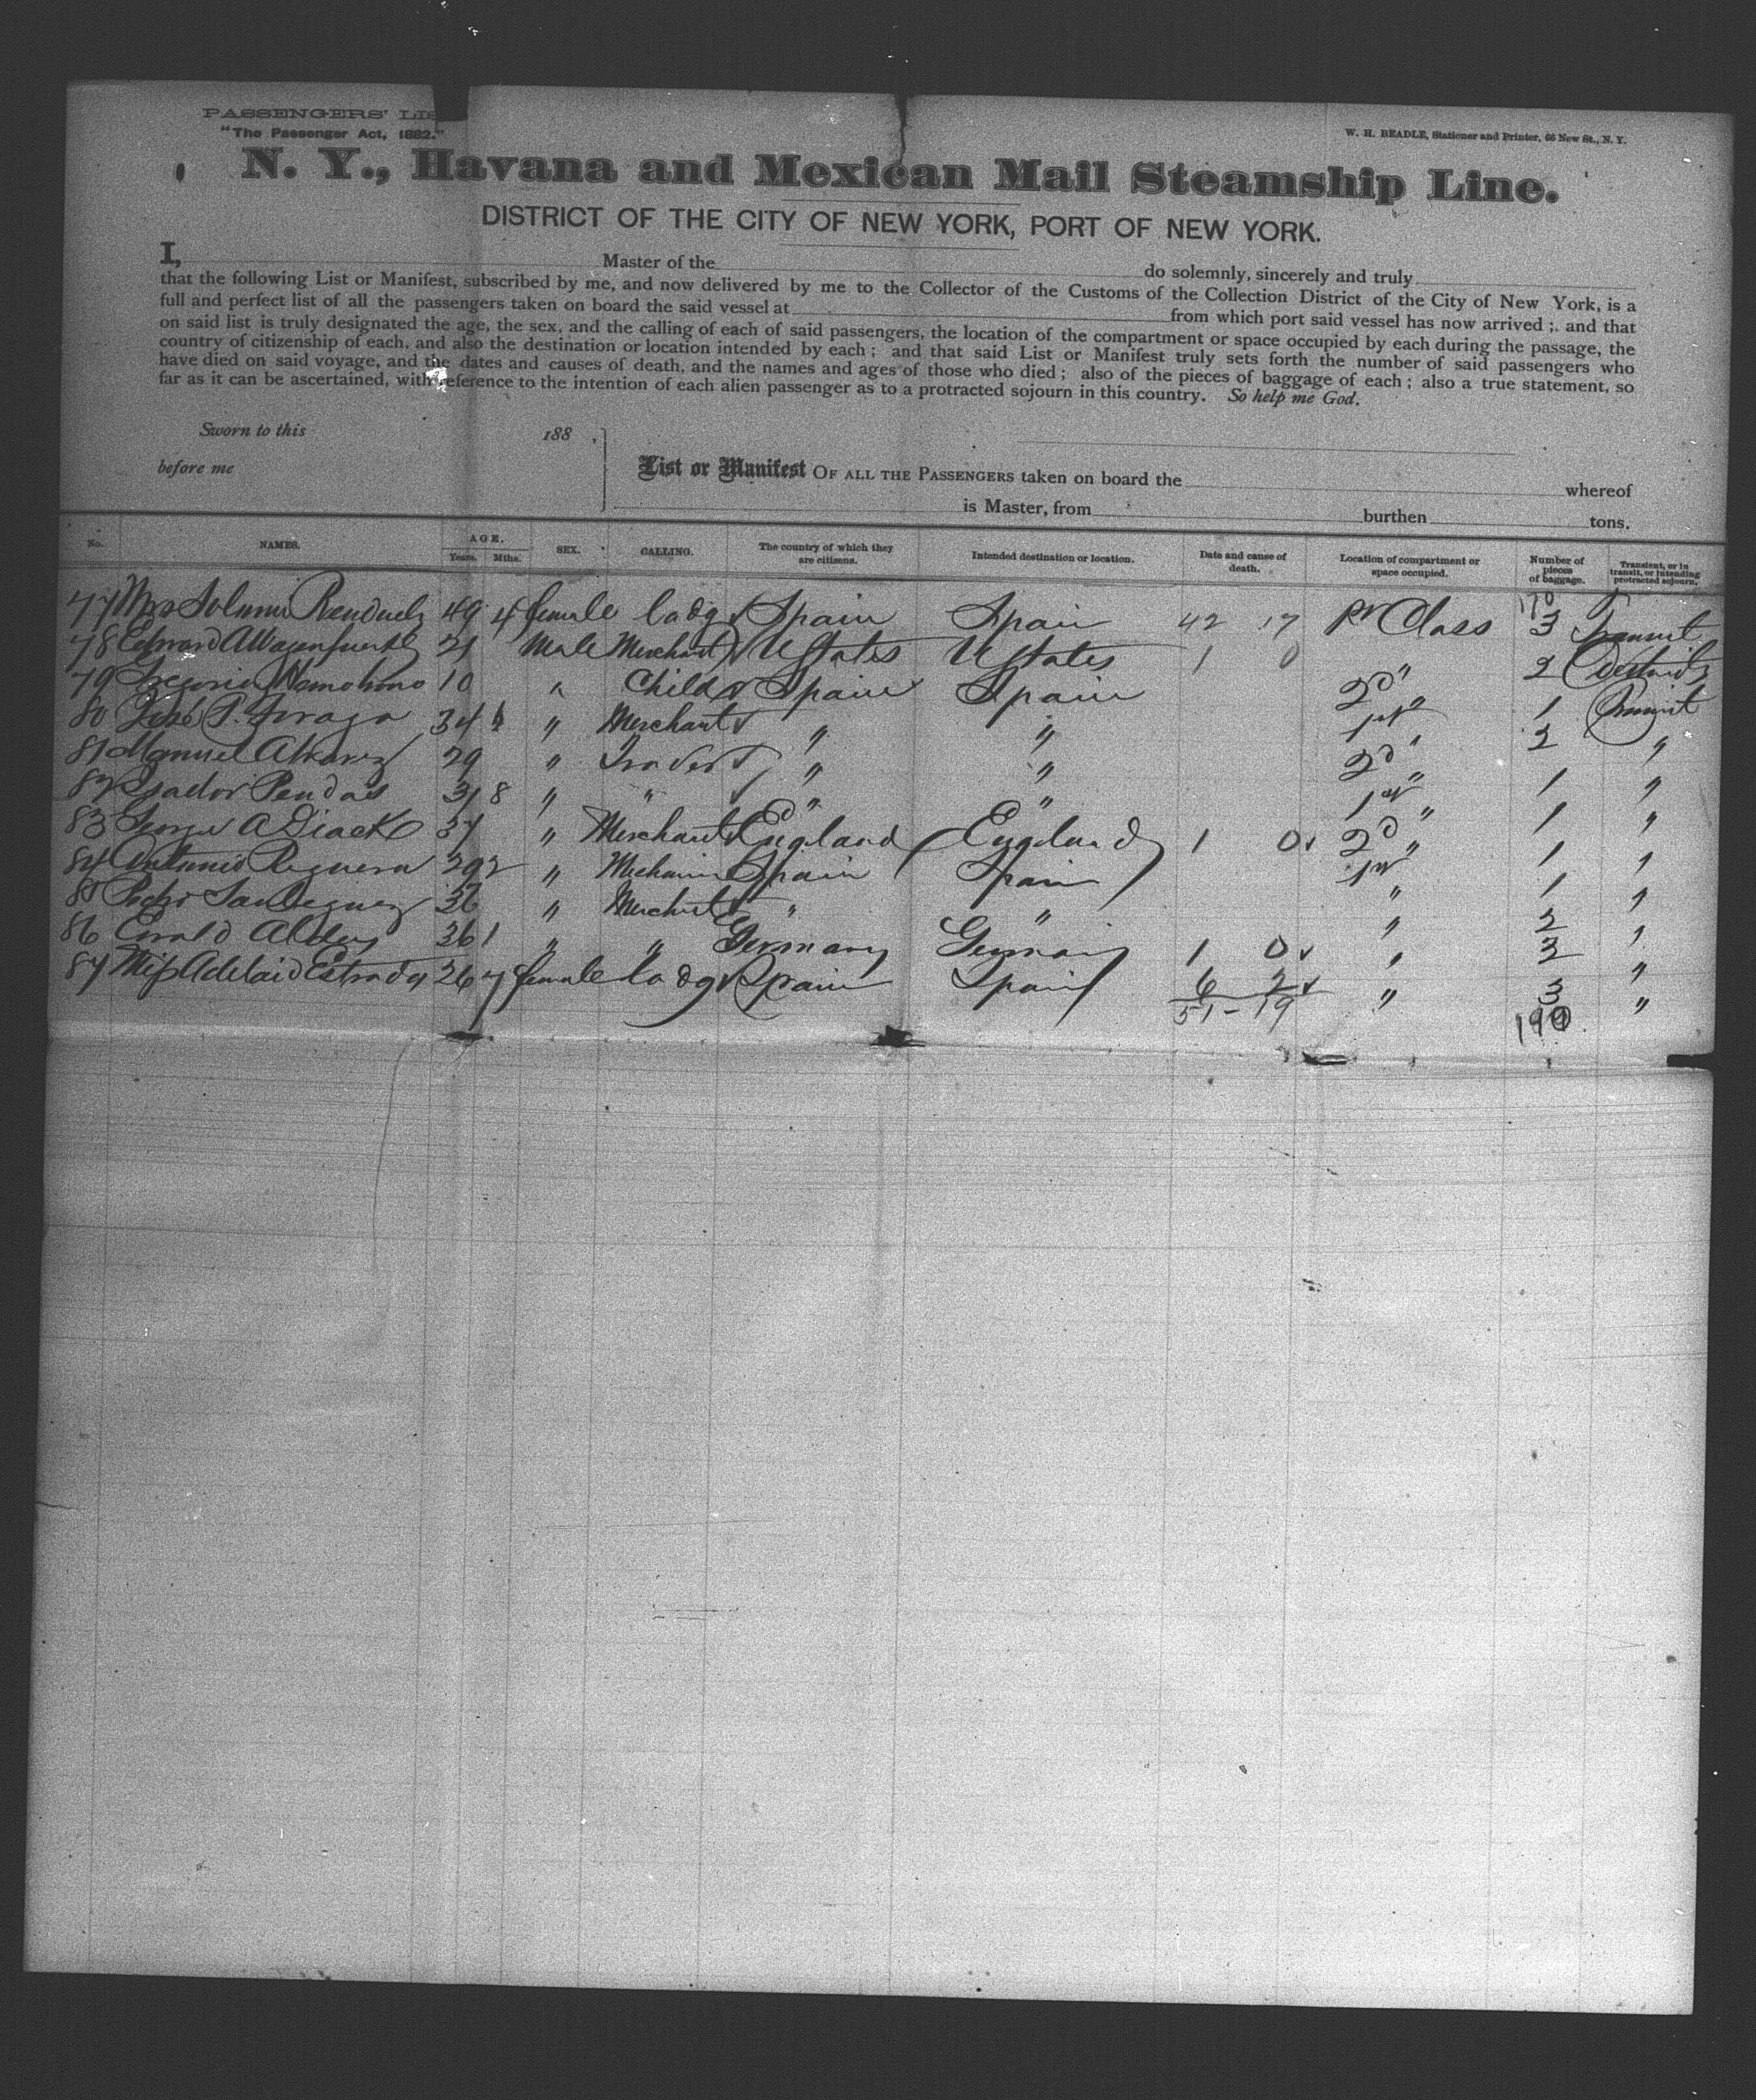 PASSENGERS' LIS
"The Passenger Act, 1882."
W. H. BEADLE, Stationer and Printer, 66 New St., N. Y.
N. Y., Havana and Mexican Mail Steamship Line.
DISTRICT OF THE CITY OF NEW YORK, PORT OF NEW YORK.
I, Master of the do solemnly, sincerely and truly
that the following List or Manifest, subscribed by me, and now delivered by me to the Collector of the Customs of the Collection District of the City of New York, is a
full and perfect list of all the passengers taken on board the said vessel at from which port said vessel has now arrived ; and that
on said list is truly designated the age, the sex, and the calling of each of said passengers, the location of the compartment or space occupied by each during the passage, the
country of citizenship of each, and also the destination or location intended by each ; and that said List or Manifest truly sets forth the number of said passengers who
have died on said voyage, and the dates and causes of death, and the names and ages of those who died ; also of the pieces of baggage of each ; also a true statement, so
far as it can be ascertained, with reference to the intention of each alien passenger as to a protracted sojourn in this country. So help me God.
Sworn to this 188 .
before me
List or Manifest OF ALL THE PASSENGERS taken on board the whereof
is Master, from burthen tons.
No. NAMES. AGE. Years. Mths. SEX. CALLING. The country of which they are citizens. Intended destination or location. Date and cause of death. Location of compartment or space occupied. Number of pieces of baggage. Transient, or in transit, or intending protracted sojourn.
170
77 Mrs 49 4 female lady Spain Spain 42 17 Class 3 Transit
78 Edward 21 Male Merchant U States U States 1 0 " 2
79 10 " Child Spain Spain 2d " 1 Transit
80 José P. 34 " Merchant " " 1st " 2 "
81 Manuel Alvarez 29 " Trader " " 2d " 1 "
82 Isador Pendas 31 8 " " " " 1st " 1 "
83 George A 37 " Merchant England England 1 0 2d " 1 "
84 Antonio Reguera 29 2 " Mechanic Spain Spain 1st 1 "
85 Pedro 36 " Merchant " " " 2 "
86 36 1 " " Germany Germany 1 0 " 3 "
87 Miss Adelaid Estrada 26 7 female lady Spain Spain 6 2 " 3 "
51 - 19
190